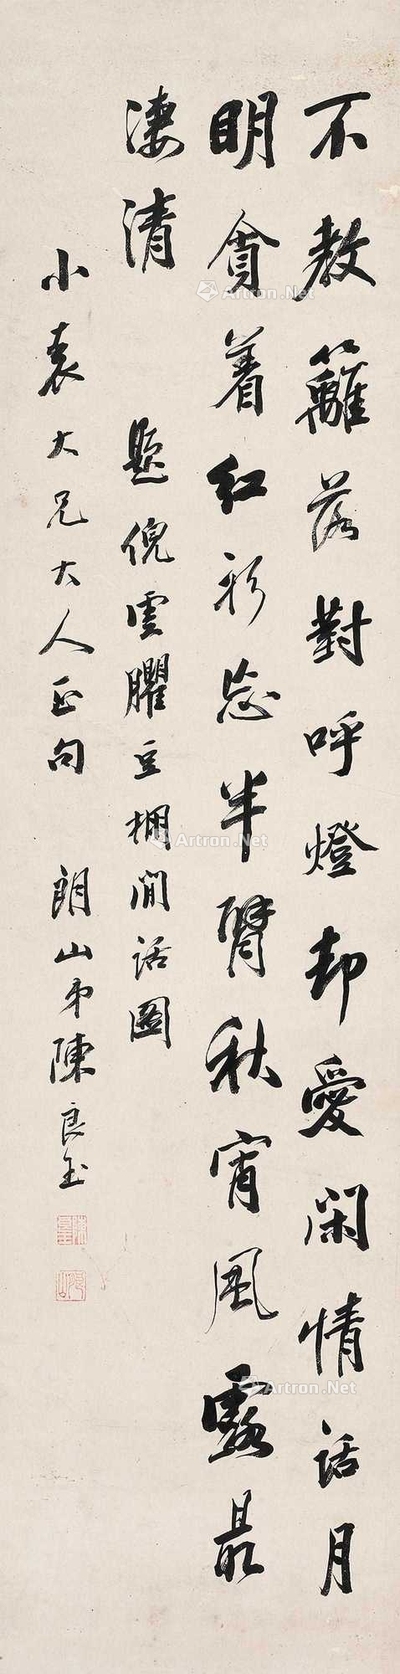 不教籬落對呼燈却愛閑情話月
明貪着紅衫忘半臂秋宵風露最
淒清
題倪雲臞豆棚閒話圖
小袁大兄大人正句
朗山弟陳良玉
Artron.Net
Artron.Net
Artron.Net